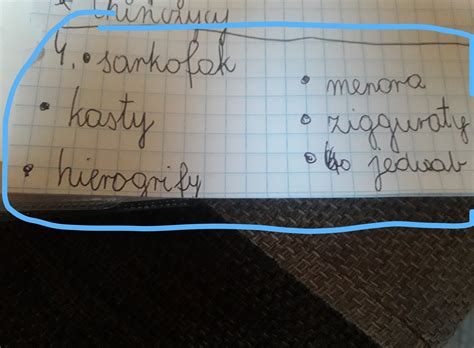 chińczycy
4. • sarkofak
• kasty
• hierogrify
• menora
• zigguraty
• jedwab